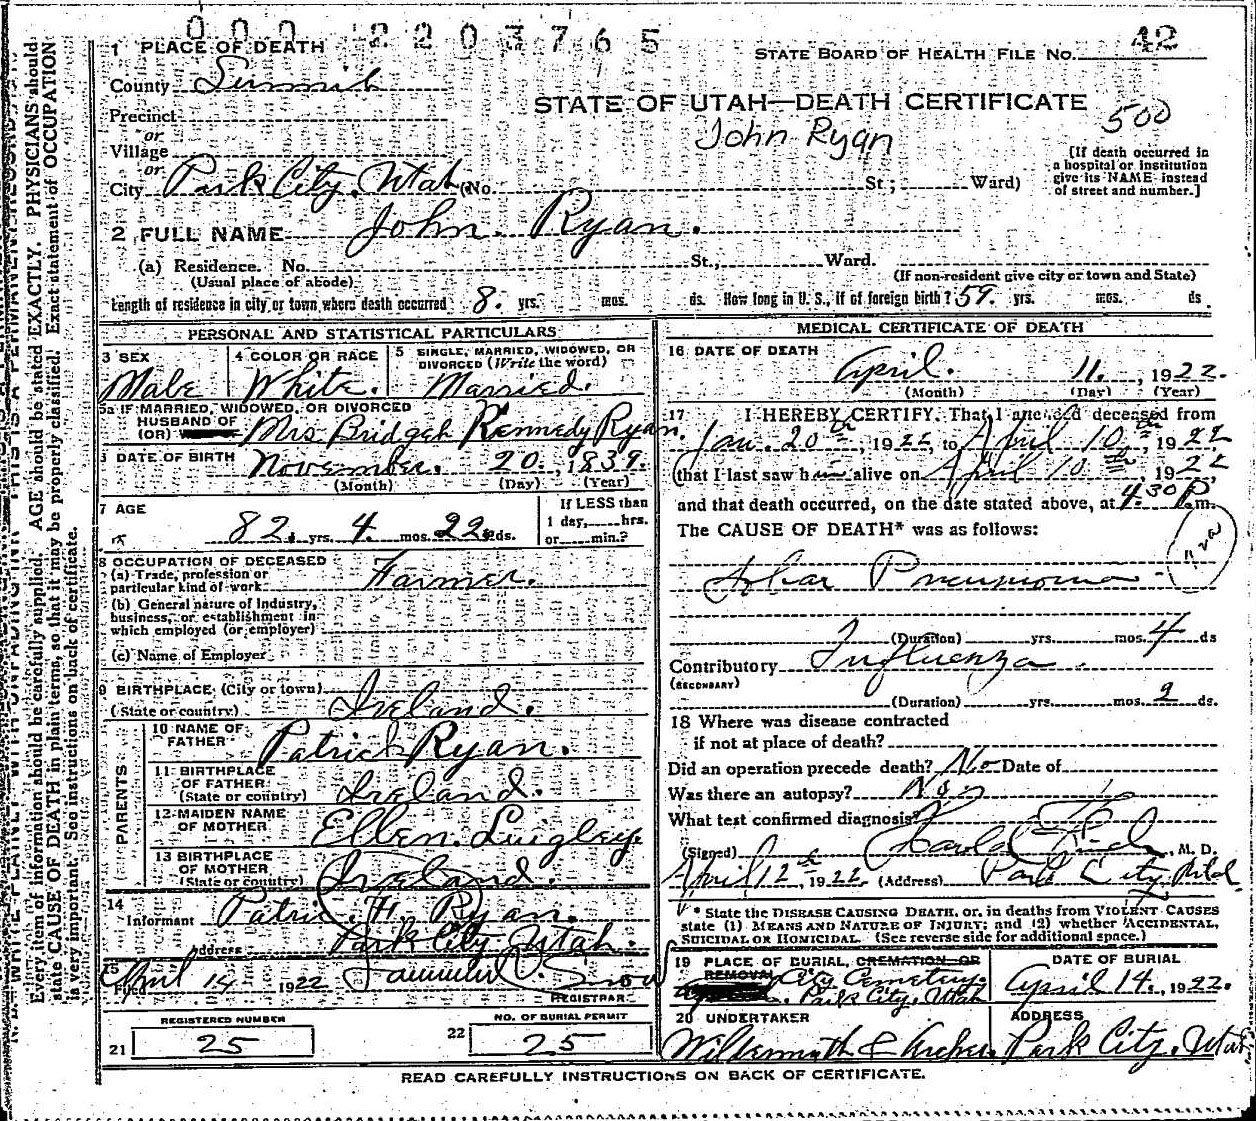 0002203765
1 PLACE OF DEATH
STATE BOARD OF HEALTH FILE No. 42
County Summit
STATE OF UTAH—DEATH CERTIFICATE
John Ryan
500
Precinct
or
Village
or
City Park City, Utah (No. St.; Ward)
[If death occurred in
a hospital or institution
give its NAME instead
of street and number.]
2 FULL NAME John Ryan.
(a) Residence. No. St., Ward.
(Usual place of abode) (If non-resident give city or town and State)
Length of residence in city or town where death occurred 8 yrs. mos. ds. How long in U. S., if of foreign birth? 59 yrs. mos. ds.
PERSONAL AND STATISTICAL PARTICULARS
3 SEX
Male
4 COLOR OR RACE
White.
5 SINGLE, MARRIED, WIDOWED, OR
DIVORCED (Write the word)
Married.
5a IF MARRIED, WIDOWED, OR DIVORCED
HUSBAND OF
(OR) Mrs Bridget Kennedy Ryan.
DATE OF BIRTH November. 20., 1839.
(Month) (Day) (Year)
7 AGE
82. yrs. 4. mos. 22 ds.
If LESS than
1 day, hrs.
or min.?
8 OCCUPATION OF DECEASED
(a) Trade, profession or
particular kind of work Farmer.
(b) General nature of Industry,
business, or establishment in
which employed (or employer)
(c) Name of Employer
9 BIRTHPLACE (City or town)
(State or country) Ireland.
PARENTS
10 NAME OF
FATHER Patrick Ryan.
11 BIRTHPLACE
OF FATHER
(State or country) Ireland.
12 MAIDEN NAME
OF MOTHER Ellen
13 BIRTHPLACE
OF MOTHER
(State or country) Ireland.
14
Informant Patric. H. Ryan.
Address Park City, Utah.
15
Filed April 14 1922
REGISTRAR
REGISTERED NUMBER
21 25
NO. OF BURIAL PERMIT
22 25
MEDICAL CERTIFICATE OF DEATH
16 DATE OF DEATH
April. 11., 1922.
(Month) (Day) (Year)
17 I HEREBY CERTIFY, That I attended deceased from
Jan. 20th, 1922, to April 10th, 1922,
(that I last saw him alive on April 10th, 1922
and that death occurred, on the date stated above, at 4.30 P.m.
The CAUSE OF DEATH* was as follows:
Lobar Pneumonia
(Duration) yrs. mos. 4 ds
Contributory Influenza
(SECONDARY)
(Duration) yrs. mos. 9 ds.
18 Where was disease contracted
if not at place of death?
Did an operation precede death? No Date of
Was there an autopsy? No
What test confirmed diagnosis?
(Signed) , M. D.
April 12th, 1922 (Address) Park City,
* State the DISEASE CAUSING DEATH, or, in deaths from VIOLENT CAUSES
state (1) MEANS AND NATURE OF INJURY; and (2) whether ACCIDENTAL,
SUICIDAL OR HOMICIDAL. (See reverse side for additional space.)
19 PLACE OF BURIAL, CREMATION OR
REMOVAL City Cemetery.
Park City, Utah
DATE OF BURIAL
April 14., 1922.
20 UNDERTAKER
ADDRESS
Park City, Utah
READ CAREFULLY INSTRUCTIONS ON BACK OF CERTIFICATE.
Every item of information should be carefully supplied. AGE should be stated EXACTLY. PHYSICIANS should
state CAUSE OF DEATH in plain terms, so that it may be properly classified. Exact statement of OCCUPATION
is very important. See instructions on back of certificate.